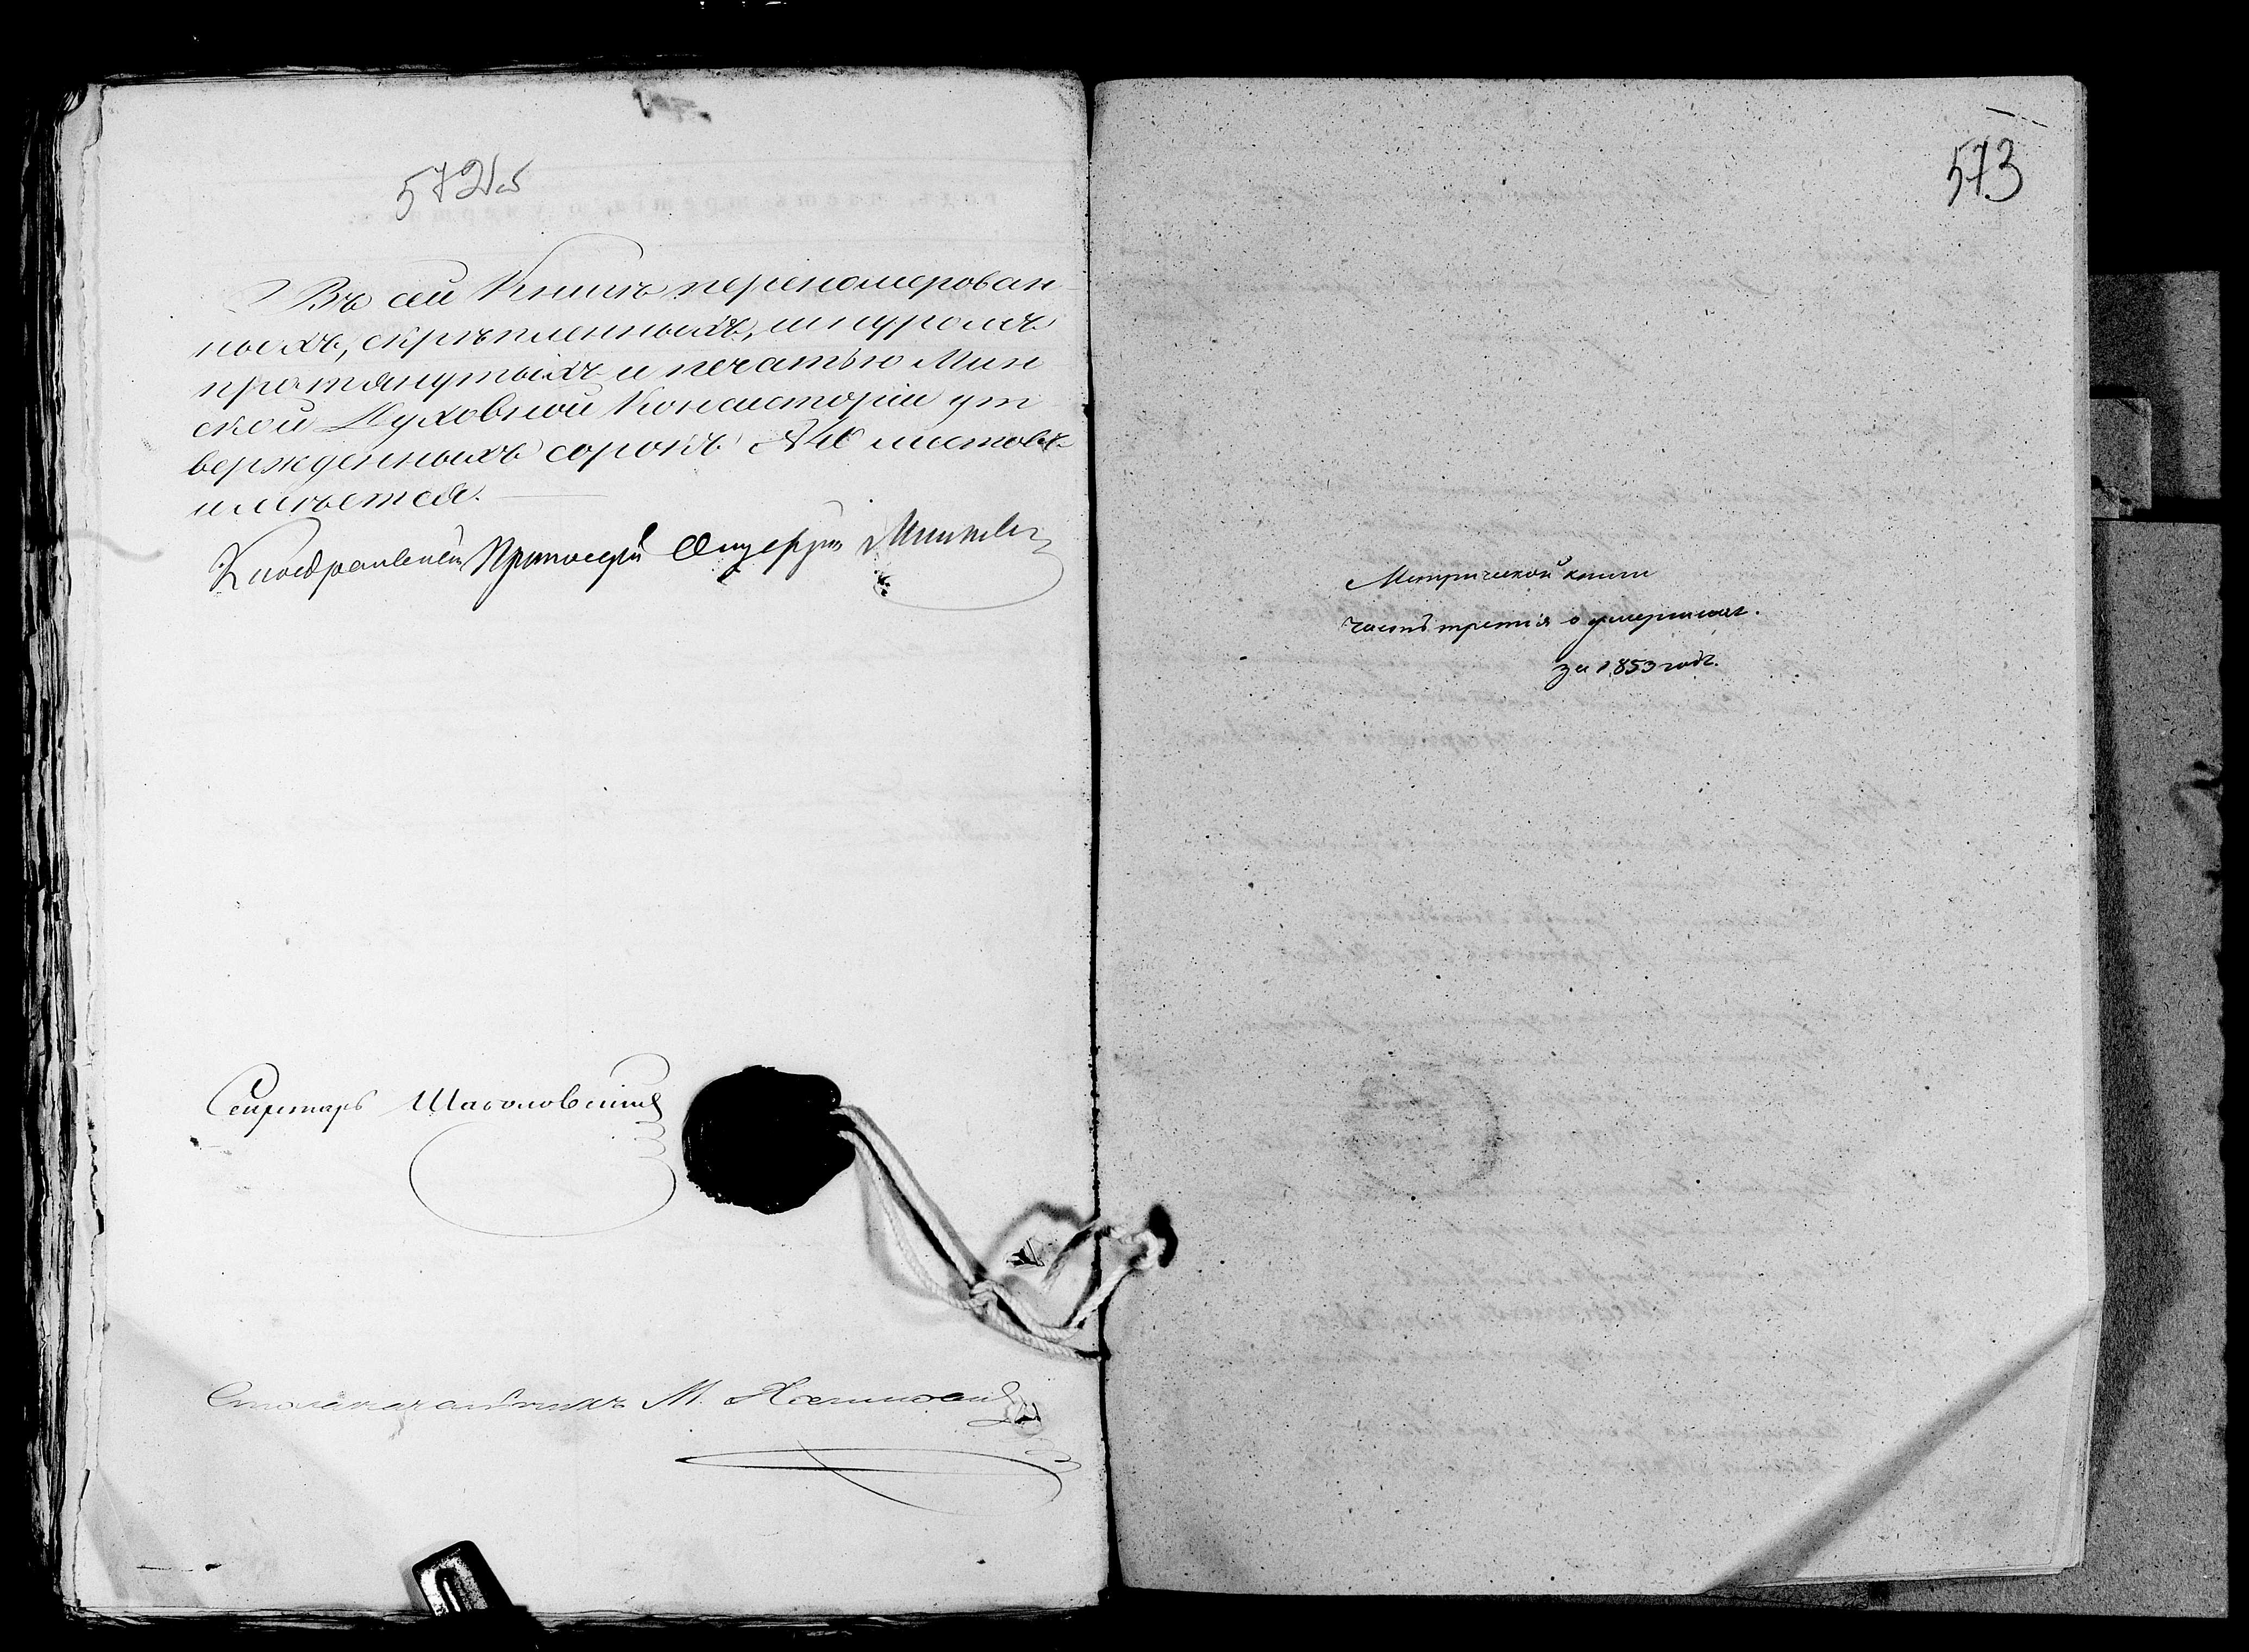 572об
Въ сей Книгѣ переномерован-
ныхъ, скрѣпленныхъ, шнуромъ
протянутыхъ и печатью Мин
ской Духовной Консисторіи ут
вержденныхъ сорокъ №40 листовъ
имѣется.
Каѳедральный Протоіерей
Секретарь
Столоначальникъ М.
573
Метрической книги
часть третья о умершихъ.
за 1853 годъ.